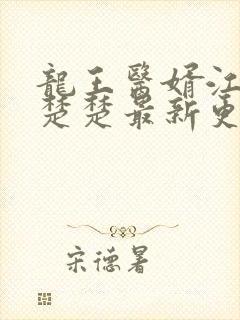 龍王醫婿江
楚楚最新更
宋德暑